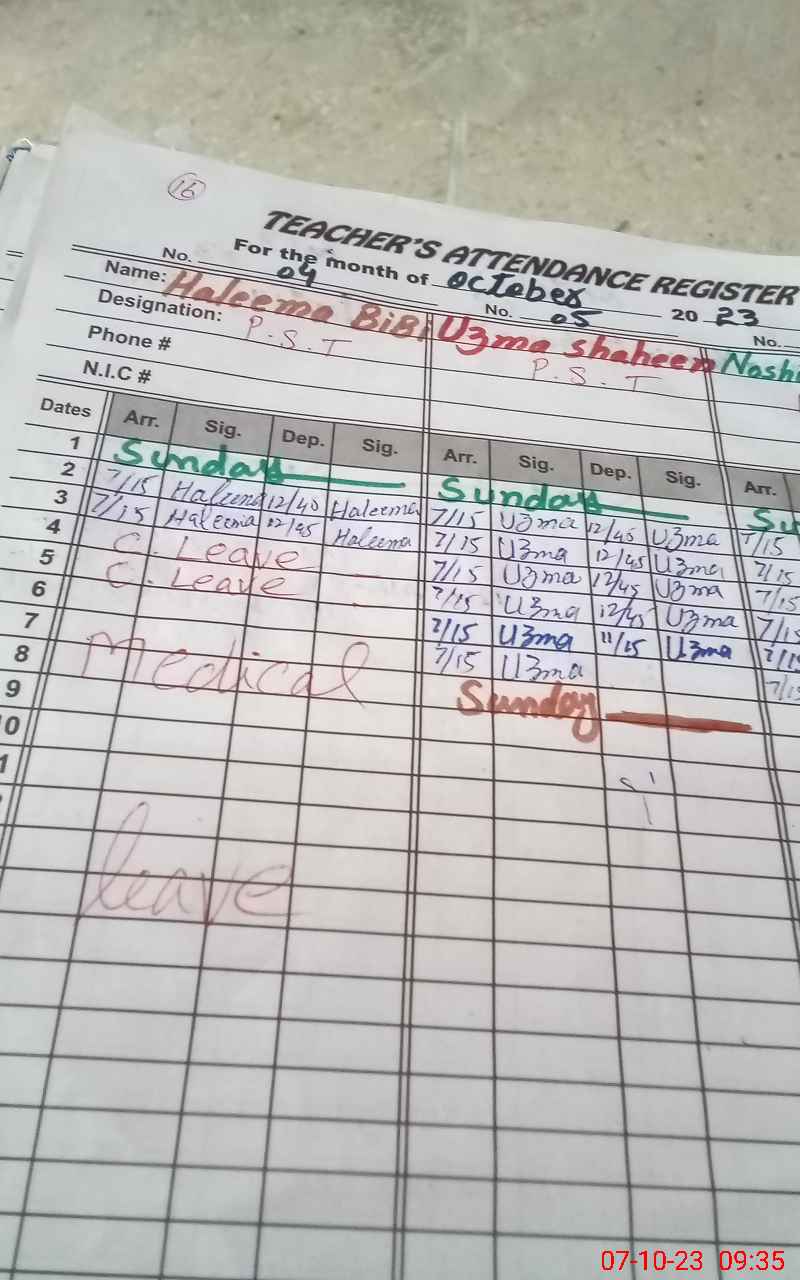 16
TEACHER'S ATTENDANCE REGISTER
For the month of October 2023
No. 04 No. 05 No.
Name: Haleema BiBi Uzma Shaheen Noshi
Designation: P.S.T P.S.T
Phone #
N.I.C #
Dates Arr. Sig. Dep. Sig. Arr. Sig. Dep. Sig. Arr.
1 Sunday Sunday Su
2 7/15 Haleema 12/40 Haleema 7/15 Uzma 12/45 Uzma 7/15
3 7/15 Haleema 12/45 Haleema 7/15 Uzma 12/45 Uzma 7/15
4 C. Leave 7/15 Uzma 12/45 Uzma 7/15
5 C. Leave 7/15 Uzma 12/45 Uzma 7/15
6 7/15 Uzma 11/15 Uzma 7/15
7 Medical 7/15 Uzma 7/15
8 Sunday
9
0
1
leave
07-10-23 09:35